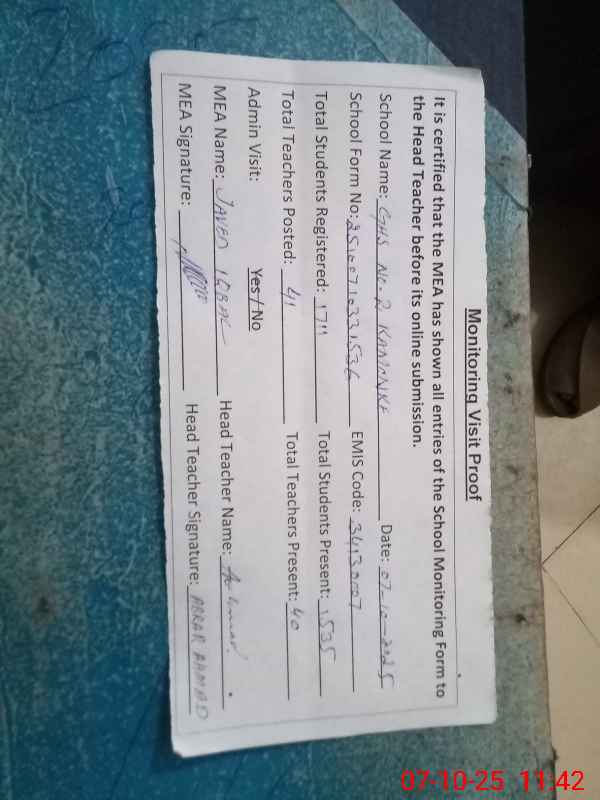 Monitoring Visit Proof
It is certified that the MEA has shown all entries of the School Monitoring Form to
the Head Teacher before its online submission.
School Name: GHS No. 2 KAMONKE Date: 07-10-2025
School Form No: 25100710331536 EMIS Code: 34130007
Total Students Registered: 1711 Total Students Present: 1535
Total Teachers Posted: 41 Total Teachers Present: 40
Admin Visit: Yes / No
MEA Name: JAVED IQBAL Head Teacher Name:
MEA Signature: Head Teacher Signature: ABRAR AHMAD
07-10-25 11.42